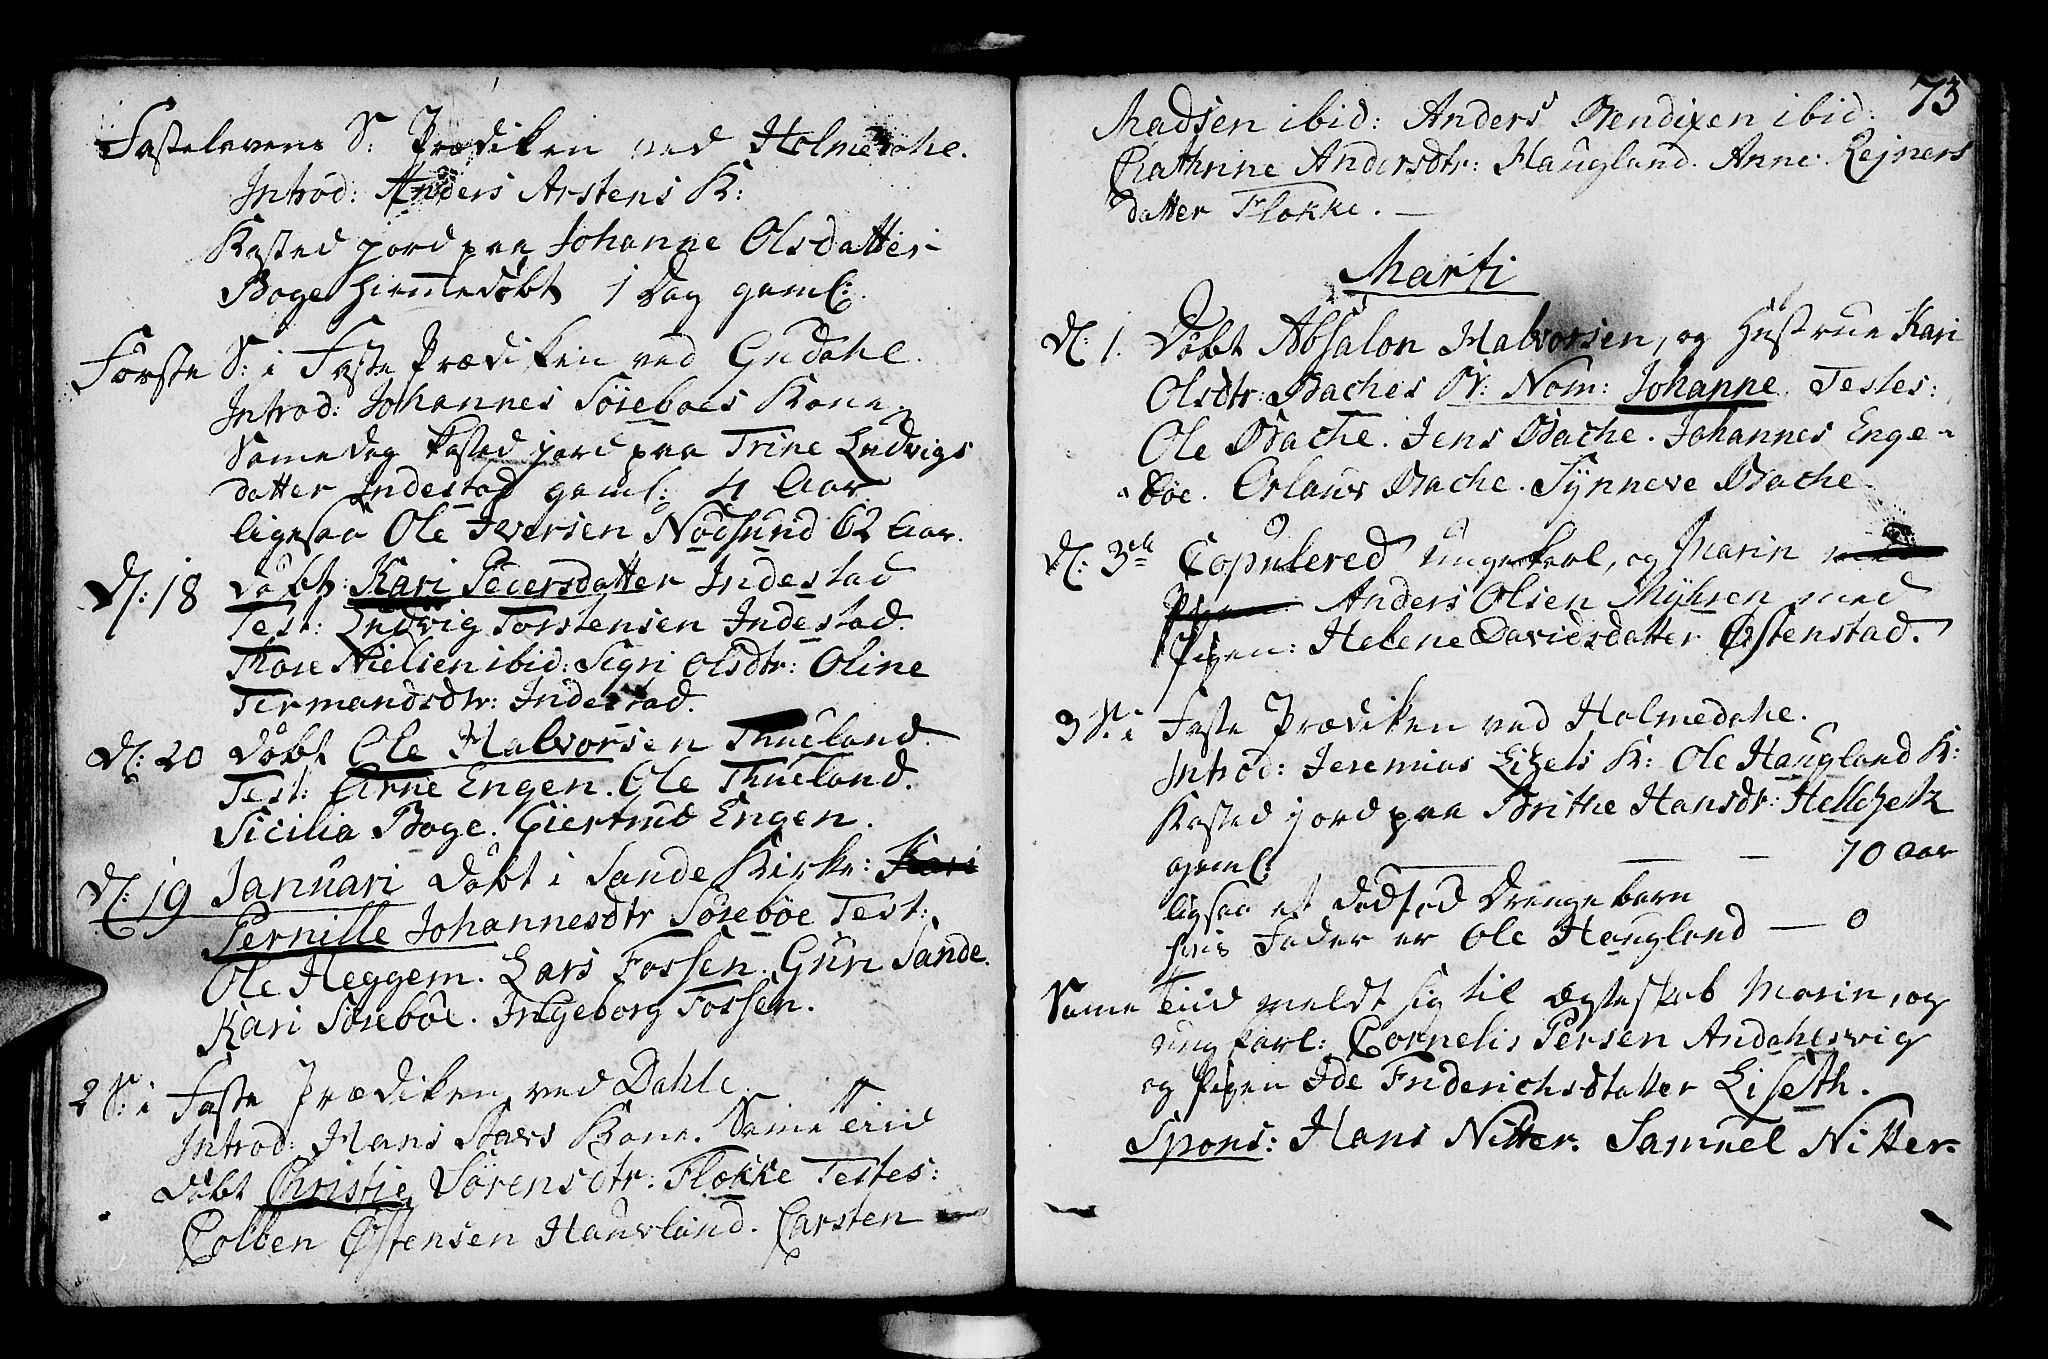 Fastelavens S: Prædiken ved Holmedahl.
Introd: Anders Arstens K:
Kasted jord paa Johanne Olsdatter
Boge hiemmedøbt 1 Dag gaml:
Første S: i Faste Prædiken ved Gudahl.
Introd: Johannes Søreboes Kone.
Same dag kasted jord paa Trine Ludvigs
datter Indestad gaml: 4 Aar
ligesaa Ole Iversen Nodsund 62 Aar.
D: 18 døbt: Kari Pedersdatter Indestad
Test: Ludvig Torstensen Indestad.
Thore Nielsen ibid: Sigri Olsdtr: Oline
Termandsdtr: Indestad.
D: 20 døbt Ole Halvorsen Thueland.
Test: Arne Engen. Ole Thueland.
Sicilia Boge. Giertrud Engen.
D: 19 Januari døbt i Sande Kirke: Kari
Pernille Johannesdtr Sørebøe Test:
Ole Heggem. Lars Fossen. Guri Sande.
Kari Sørebøe. Ingeborg Fossen.
2 S: i Faste Prædiken ved Dahle.
Introd: Hans Kone. Same tiid
døbt Christie Sørensdtr: Flokke Testes:
Colben Østensen Hauvland. Carsten
73
Madsen ibid: Anders Bendixen ibid:
Cathrine Andersdtr: Haugland. Anne Lejners
datter Flokke.
Marti
D: 1. Døbt Absalon Halvorsen, og Hustrue Kari
Olsdtr: Baches B: Nom: Johanne Testes:
Ole Bache. Jens Bache. Johannes Enge-
bøe. Erlauv Bache. Synneve Bache.
D: 3de Copulered ungekarl, og Marin med
Pigen Anders Olsen Myhren med
Pigen: Helene Davidsdatter Østenstad.
3 S: i Faste Prædiken ved Holmedahl.
Introd: Jeremias Lizets K: Ole Haugland K:
Kasted jord paa Brithe Hansdr: Hellesett
gaml: — 70 aar
ligsaa et dødfød Drengebarn
hvis Fader er Ole Haugland — 0
Same tiid meldt sig til Ægteskab Marin, og
ungkarl: Cornelis Persen Andahlsvig
og Pigen Ide Friderichsdtatter Liseth.
Spons: Hans Nitter. Samuel Nitter.